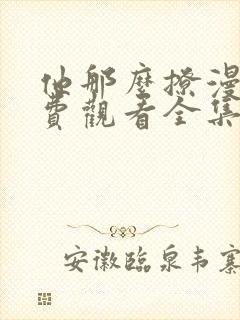 他那麼撩漫
費觀看全集
安徽臨泉韦寨